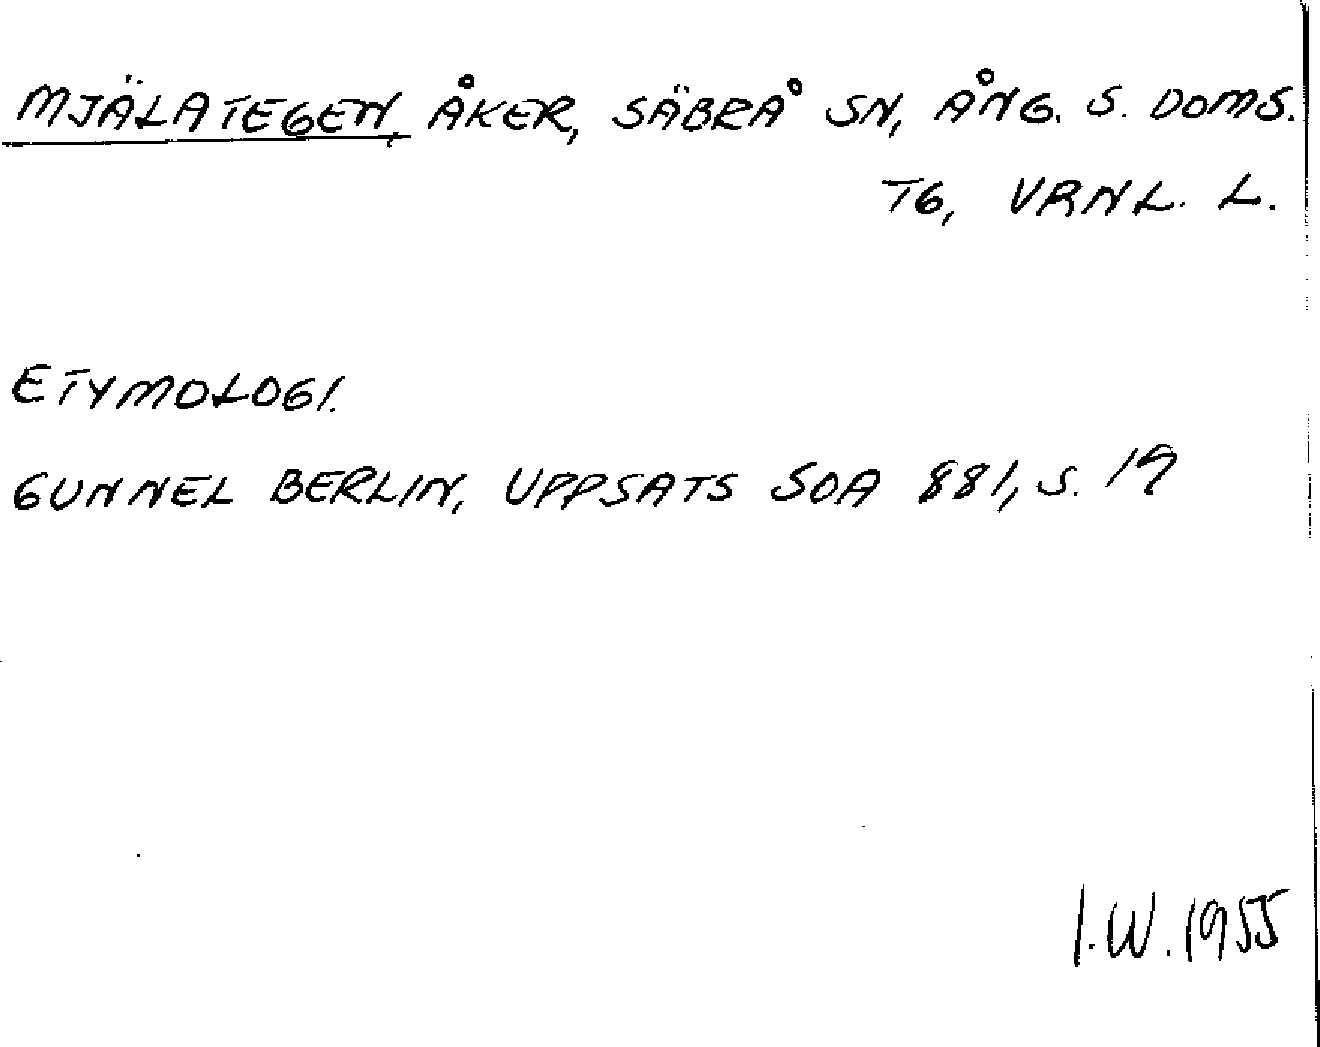 MJÄLATEGEN, ÅKER, SÄBRÅ SN, ÅNG. S. DOMS.
TG, VRNL. L.
ETYMOLOGI.
GUNNEL BERLIN, UPPSATS SOA 881, S. 19
I.W. 1955